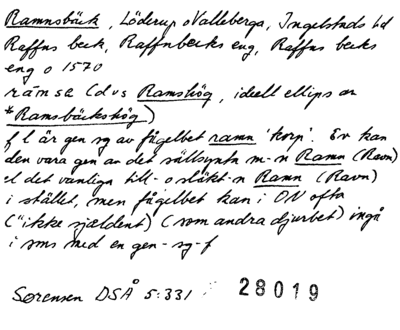 Ramnsbäck, Löderup o Valleberga, Ingelstads hd
Raffns beck, Raffnbecks eng, Raffns becks
eng o 1570
rämsa (dvs Ramshög, ideell ellips av
*Ramsbäckshög)
f l är gen sg av fågelbet ramn 'korp'. Ev kan
den vara gen av det sällsynta m-n Ramn (Ravn)
el det vanliga till- o släkt-n Ramn (Ravn)
i stället, men fågelbet kan i ON ofta
("ikke sjældent) (som andra djurbet) ingå
i sms med en gen-sg-f
Sørensen DSÅ 5:331 28019